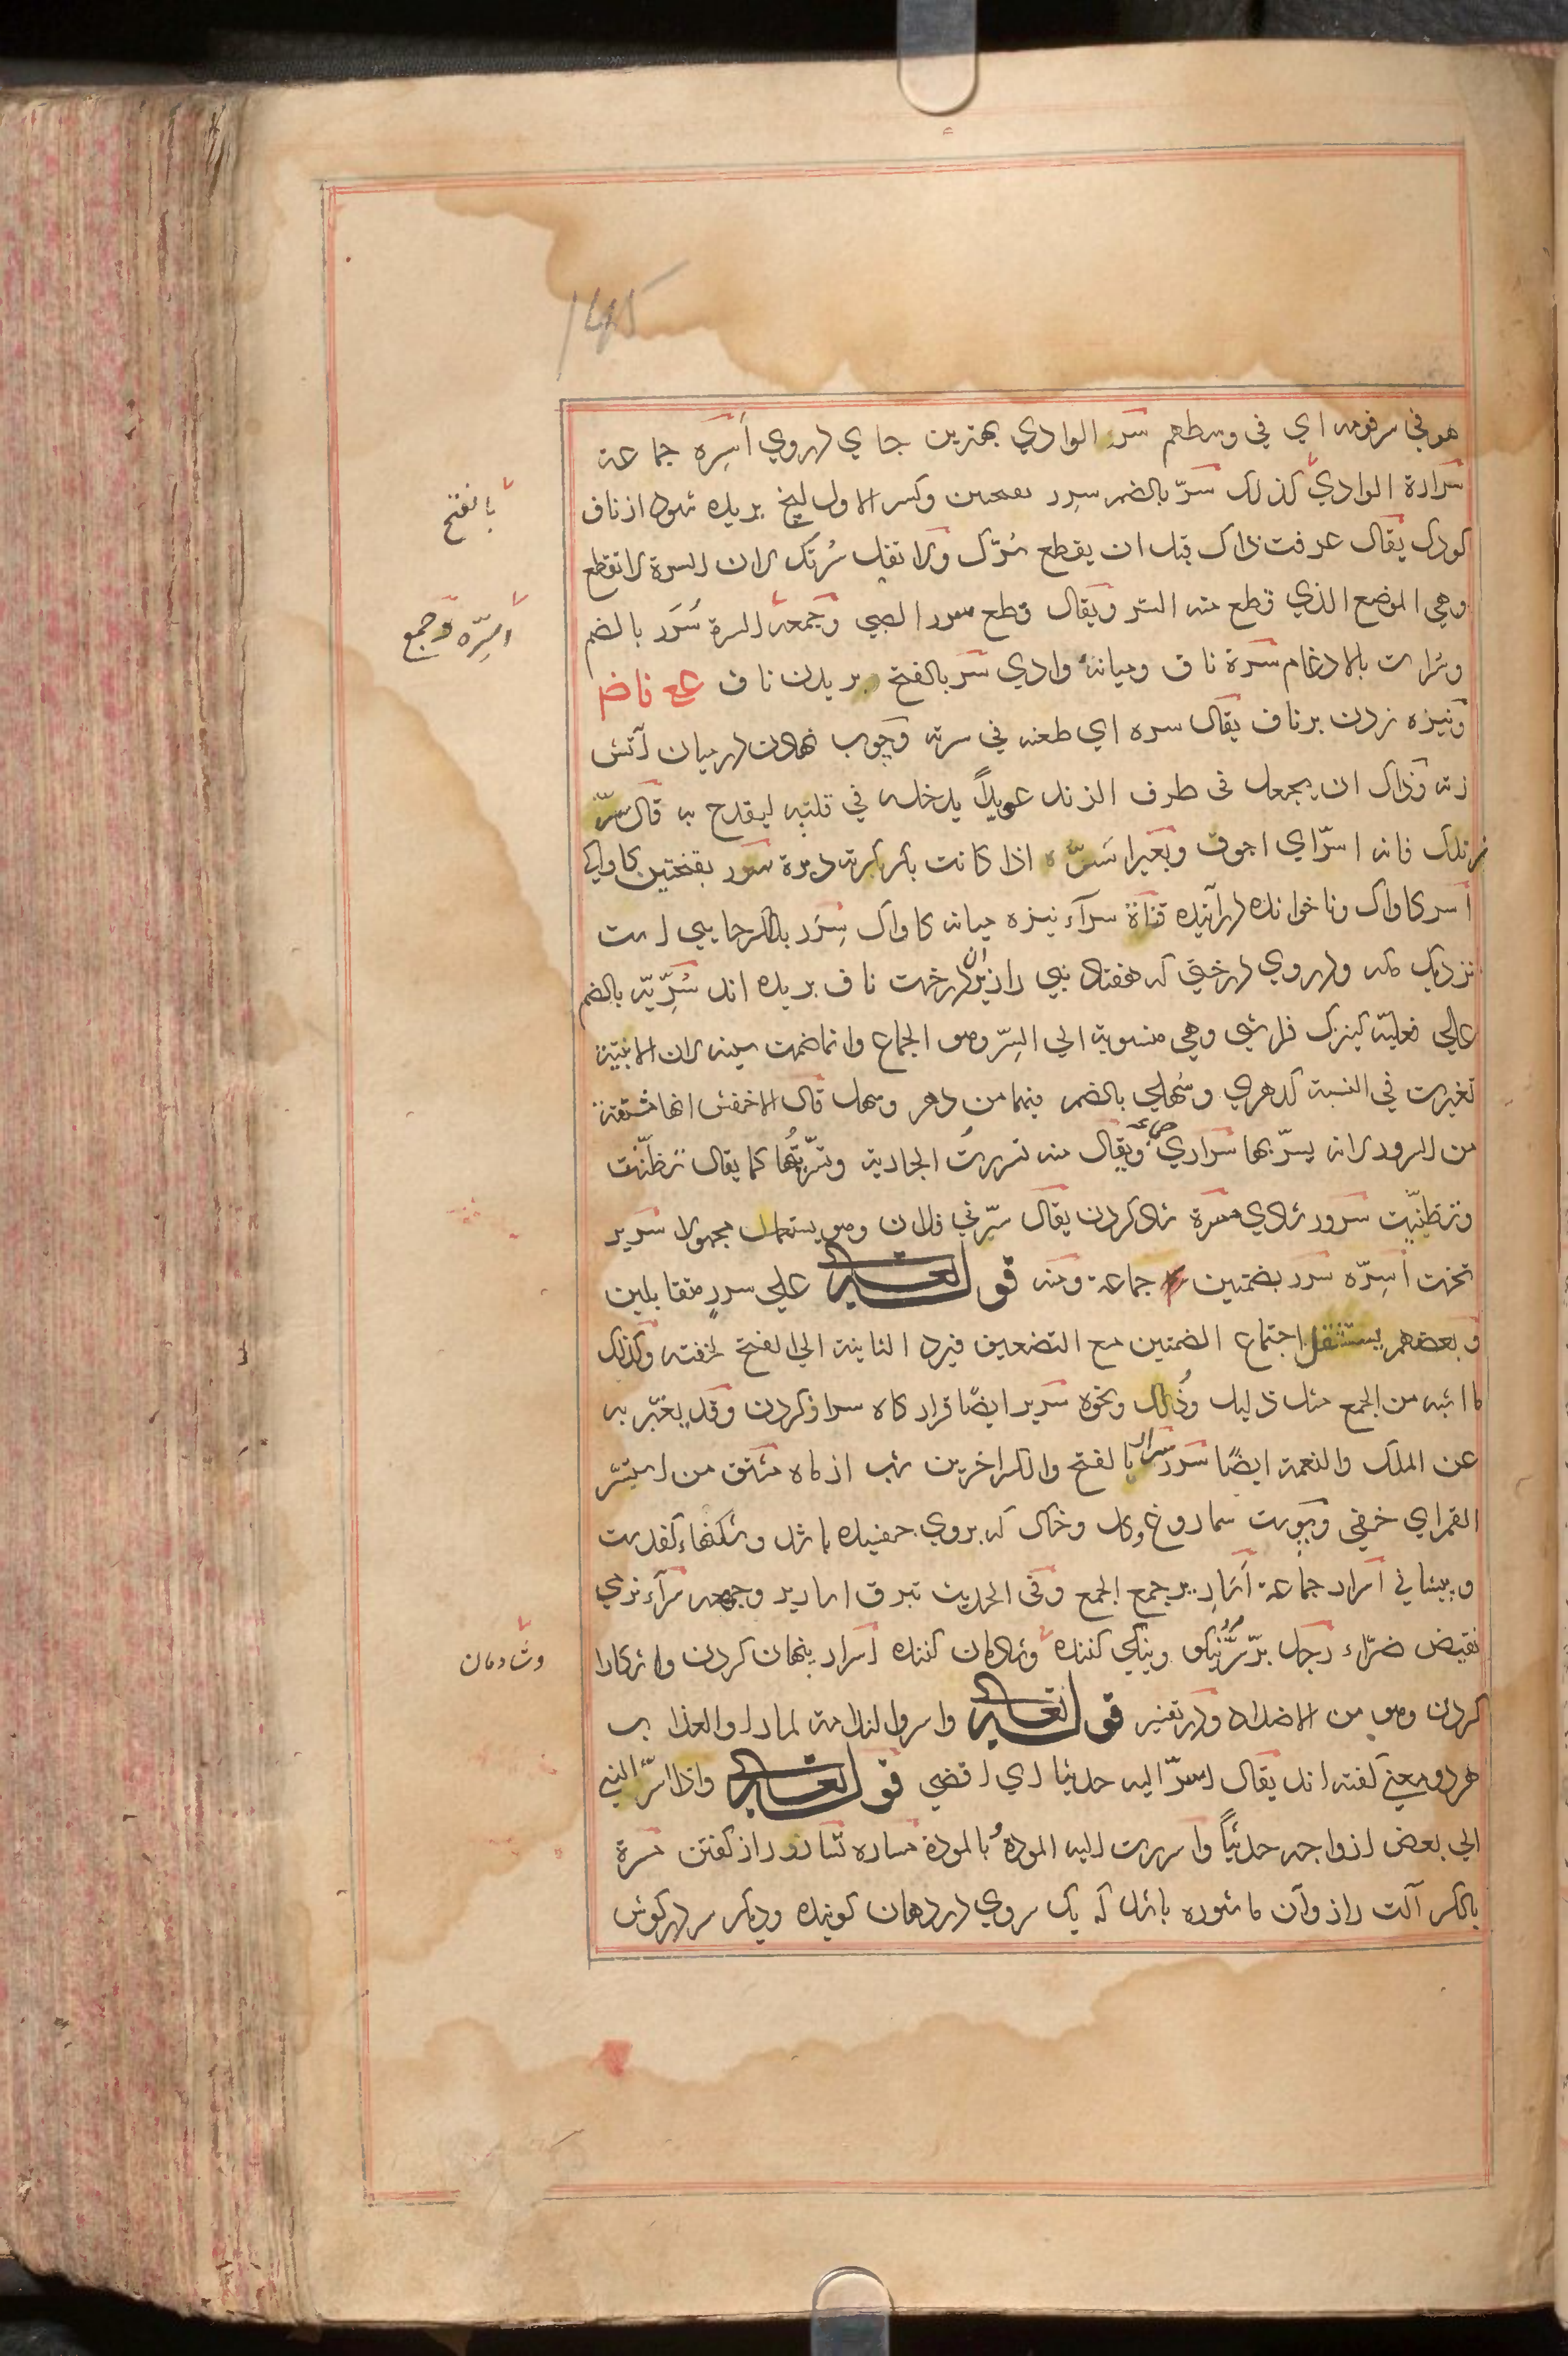 145
هو في سر قومه اي في وسطهم سر الوادي بهترين جاي در وي اسره جماعة
سرارة الوادي كذلك سر بالضم سرر بفتحتين وكسر الاول ايخ بريده شود از ناف
كودك يقال عرفت ذاك قبل ان يقطع سرك ولا تقل سرتك لان السرة لا تقطع
وهي الموضع الذي قطع منه السر ويقال قطع سرر الصبي وجمعه السرة سرر بالضم
وسرات بالادغام سرة ناف وميانه وادي سر بالفتح بريدن ناف ع ع ناض
ونيزه زدن بر ناف يقال سره اي طعنه في سرته وچوب نهادن در ميان آتش
زنه وذاك ان يجعل في طرف الزند عويدا يدخله في قلبه ليقدح به قال سر
زندك فانه اسر اي اجوف وبعير اسر اذا كانت بكركرته دبرة سرر بفتحتين كاواكي
اسر كاواك وناخوانده در آينده قناة سراء نيزه ميانه كاواك سرر بالكسر جايي است
نزديك مكه ودر وي درختي كه هفتاد نبي را زير ان درخت ناف بريده اند سرية بالضم
علي فعلية كنيزك فراشي وهي منسوبة الي السر وهو الجماع وانما ضمت سينه لان الابنية
تغيرت في النسبة كدهري وسهلي بالضم فيهما من دهر وسهل قال الاخفش انها مشتقة
من السرور لانه يسر بها سراري ج ع ويقال منه تسررت الجارية وتسريتها كما يقال تظننت
وتظنيت سرور شادي مسرة شاد كردن يقال سرني فلان وهو يستعمل مجهولا سرير
تخت اسره سرر بضمتين جماعة ومنه قوله تعالى علي سرر متقابلين
وبعضهم يستثقل اجتماع الضمتين مع التضعيف فيرد الثانية الي الفتح لخفته وكذلك
ما اشبه من الجمع مثل ذليل وذلل ونحوه سرير ايضا قرار كاه سر از كردن وقد يعبر به
عن الملك والنعمة ايضا سرر سرار بالفتح والكسر اخرين شب از ماه مشتق من استسر
القمر اي خفي وپوست سماروغ وكل وخاك كه بروي جفيده باشد وشكنهاء كفدست
وپيشاني اسرار جماعة اسارير جمع الجمع وفي الحديث تبرق اسارير وجهه سراء نرمي
نقيض ضراء رجل بر سر نيكو ونيكي كننده وشادمان كننده اسرار پنهان كردن واشكارا
كردن وهو من الاضداد ودر تفسير قوله تعالى واسروا الندامة لما راوا العذاب
هر دو معني كفته اند يقال اسر اليه حديثا اي افضي قوله تعالى واذ اسر النبي
الي بعض ازواجه حديثا واسررت اليه المودة وبالمودة مساره تسار و راز كفتن مسرة
بالكسر آلت راز وآن ماشوره باشد كه يك سر وي در دهان كويند وديكر سر در كوش
بالفتح
اسره وجمع
وشادمان